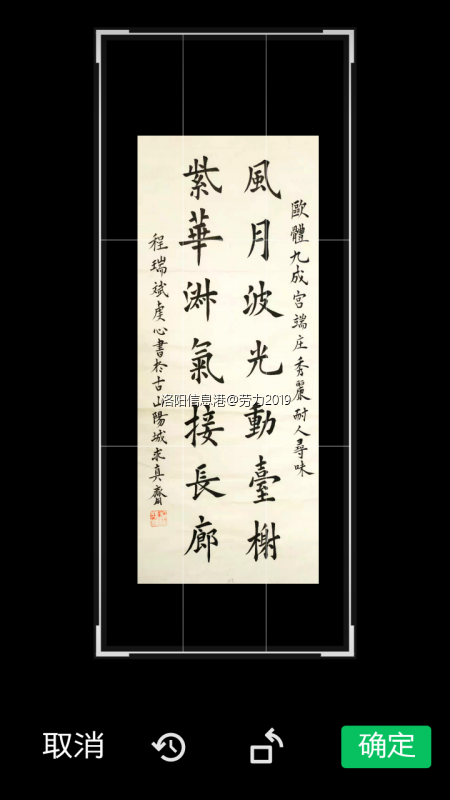 歐體九成宮端庄秀麗耐人尋味
風月波光動臺榭
紫華淋氣接長廊
程瑞斌虔心書於古山陽城求真齋
洛阳信息港@劳力2019
取消
确定